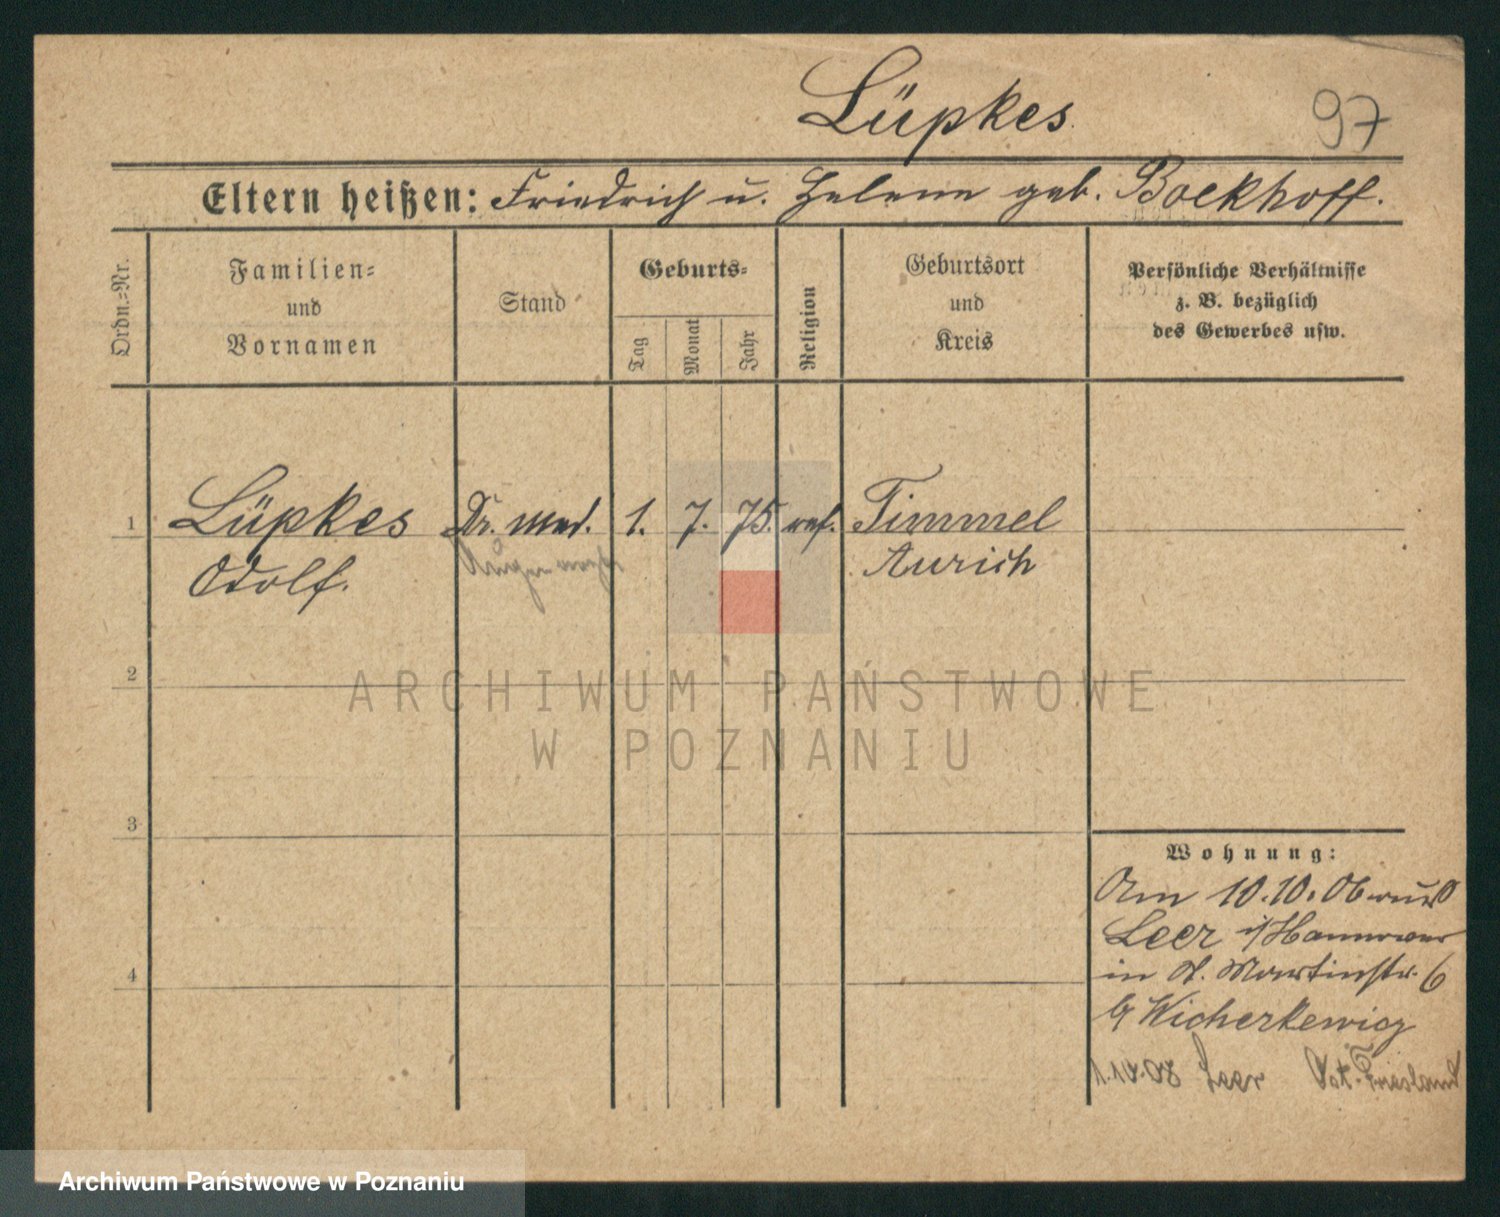 Lüpkes
97
Eltern heißen: Friedrich u. Helene geb. Boekhoff.
Ordn.-Nr.
Familien-
und
Vornamen
Stand
Geburts-
Tag
Monat
Jahr
Religion
Geburtsort
und
Kreis
Persönliche Verhältnisse
z. B. bezüglich
des Gewerbes usw.
1 Lüpkes Dr. med. 1. 7. 75. ref. Timmel
Adolf. Aurich
2
3
4
Wohnung:
Am 10.10.06
Leer i/Hannover
in St. Martinstr. 6
b/
1.10.08 Leer Ost-Friesland
ARCHIWUM PAŃSTWOWE
W POZNANIU
Archiwum Państwowe w Poznaniu